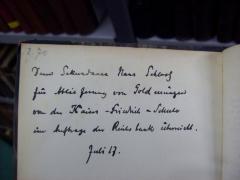 2.70
Dem Sekundaner Hans Schloß
für Ablieferung von Goldmünzen
von der Kaiser-Friedrich-Schule
im Auftrage der Reichsbank überreicht.
Juli 17.